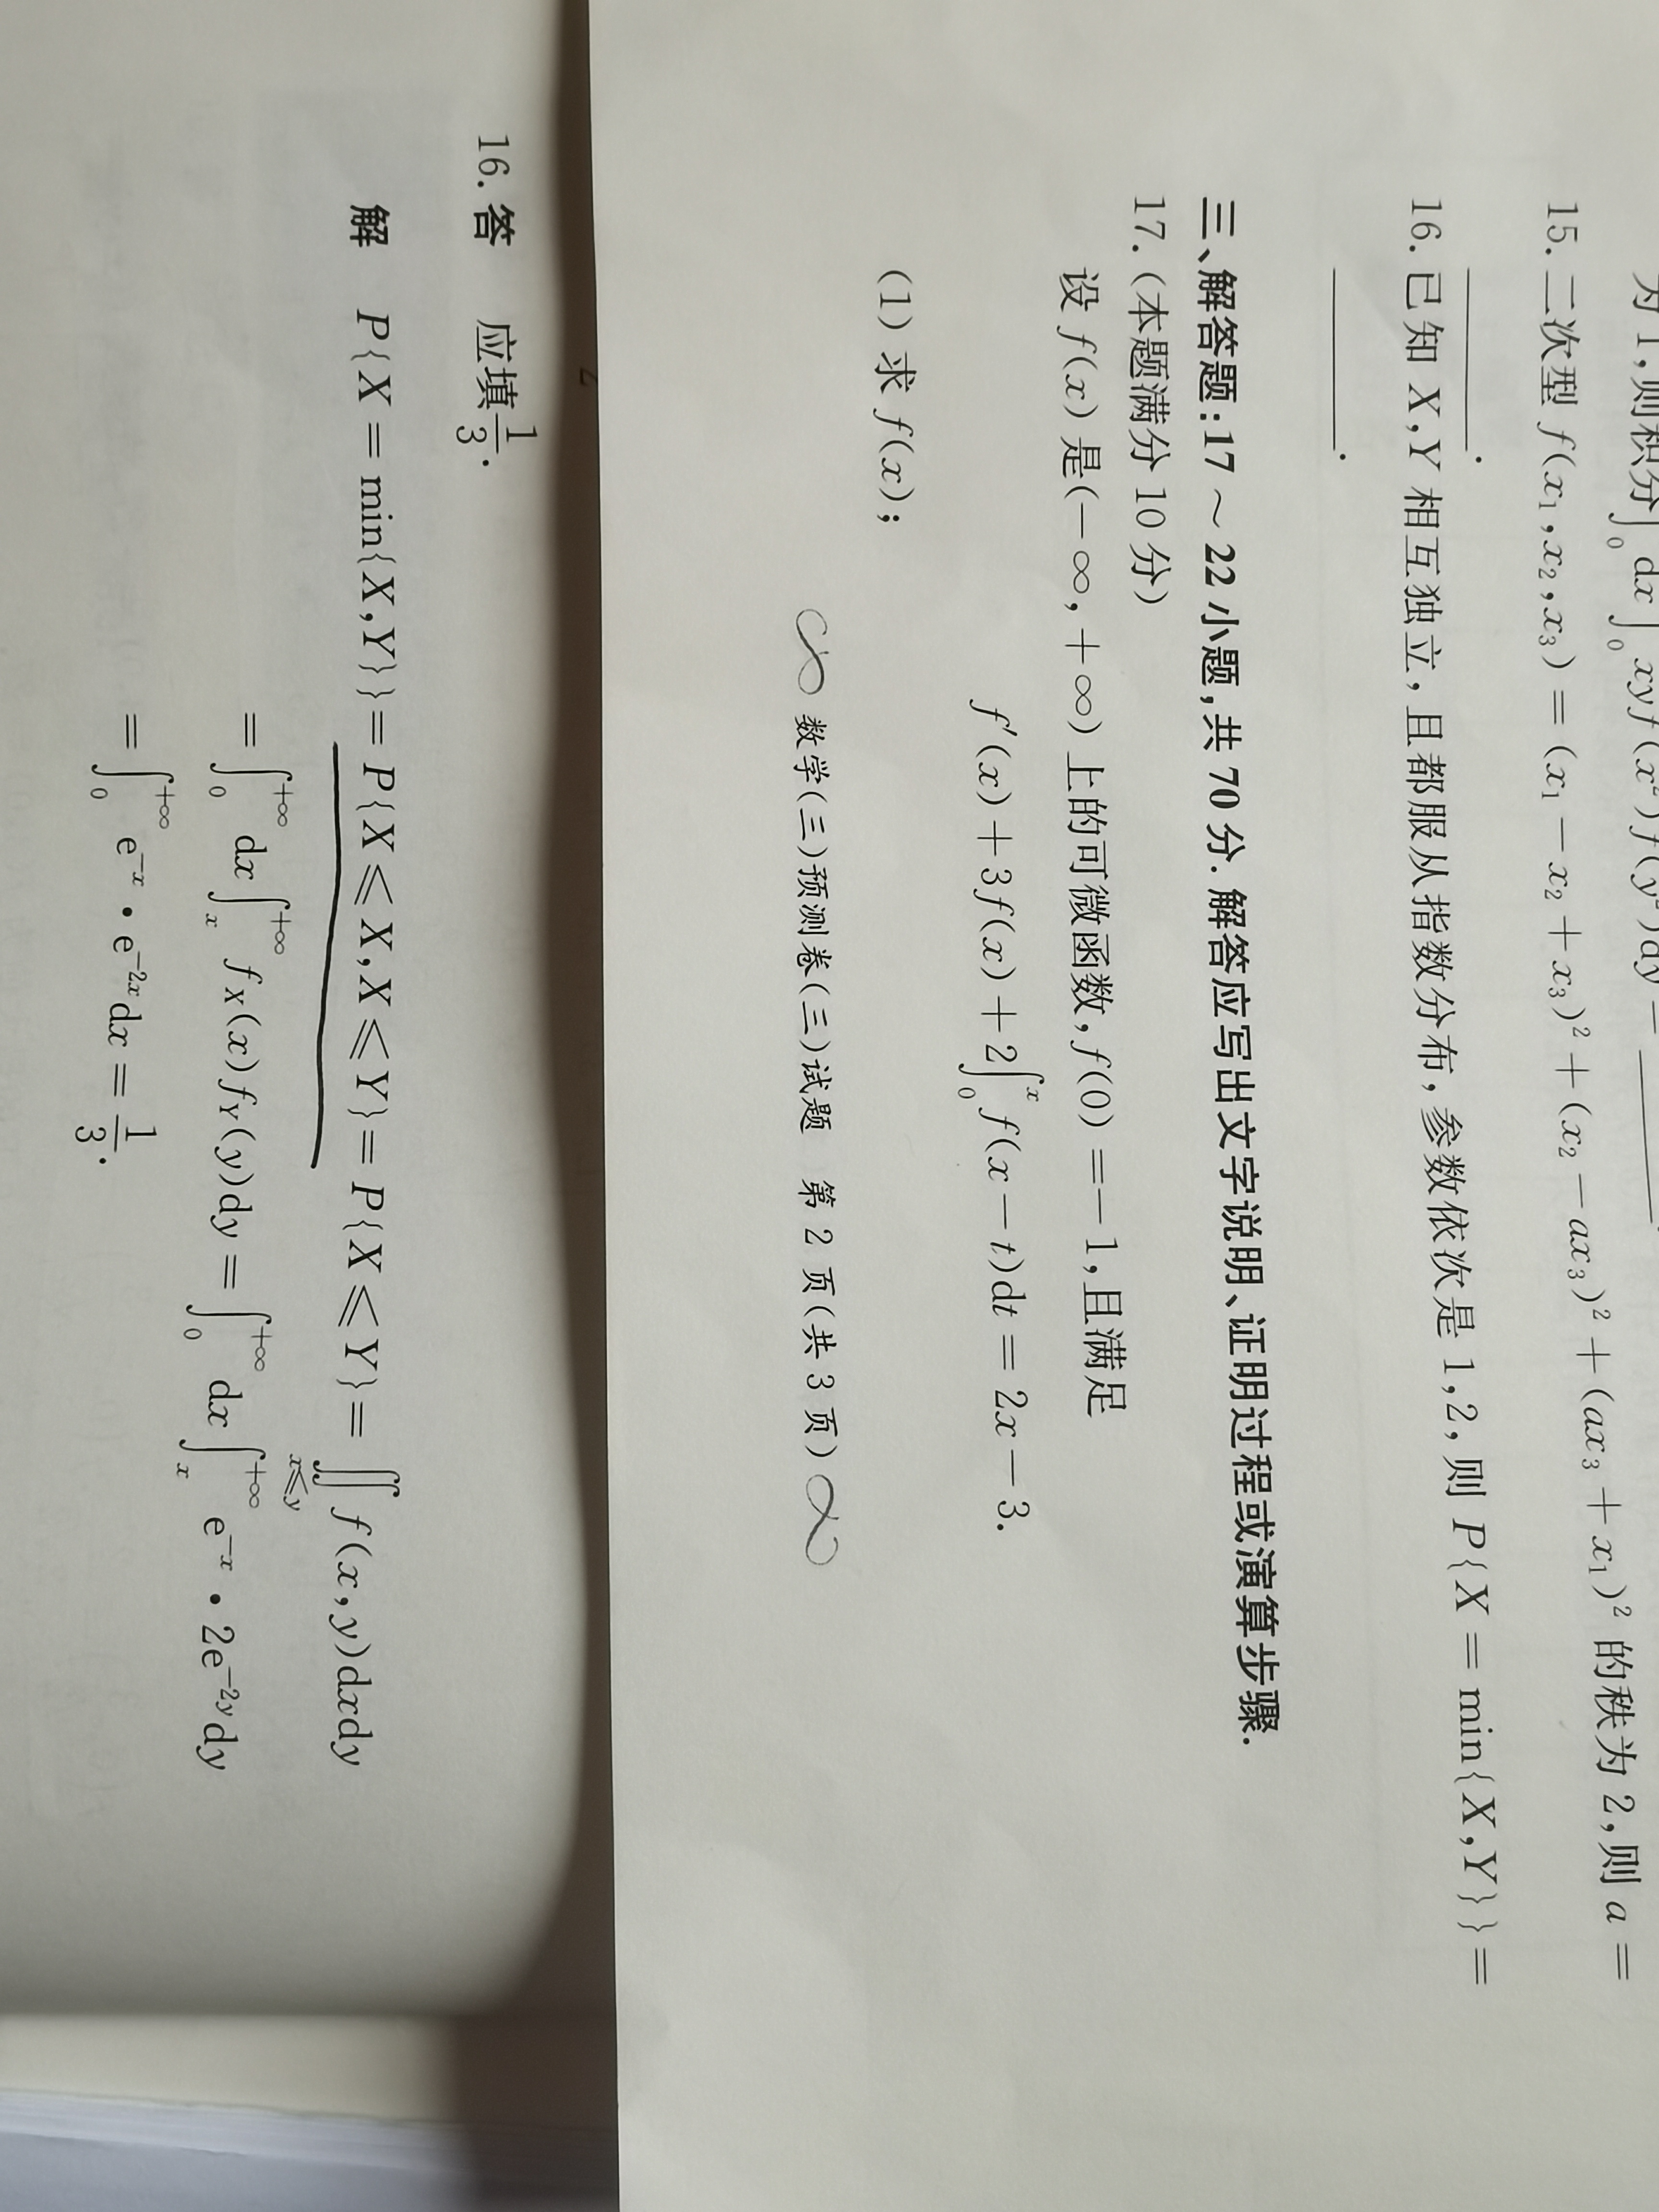 为 1,则积分∫₀ dx ∫₀ xyf(x²)f(y²)dy = ______.
15. 二次型 f(x₁,x₂,x₃) = (x₁ − x₂ + x₃)² + (x₂ − ax₃)² + (ax₃ + x₁)² 的秩为 2,则 a =
______.
16. 已知 X,Y 相互独立,且都服从指数分布,参数依次是 1,2,则 P{X = min{X,Y}} =
______.
三、解答题:17 ~ 22 小题,共 70 分. 解答应写出文字说明、证明过程或演算步骤.
17. (本题满分 10 分)
设 f(x) 是(−∞,+∞) 上的可微函数,f(0) =− 1,且满足
f′(x) + 3f(x) + 2∫₀ˣ f(x − t)dt = 2x − 3.
(1) 求 f(x);
数学(三)预测卷(三)试题 第 2 页(共 3 页)
16. 答 应填 1/3.
解 P{X = min{X,Y}} = P{X ⩽ X,X ⩽ Y} = P{X ⩽ Y} = ∬_{x⩽y} f(x,y)dxdy
= ∫₀^{+∞} dx ∫ₓ^{+∞} f_X(x)f_Y(y)dy = ∫₀^{+∞} dx ∫ₓ^{+∞} e^{−x} · 2e^{−2y}dy
= ∫₀^{+∞} e^{−x} · e^{−2x}dx = 1/3.